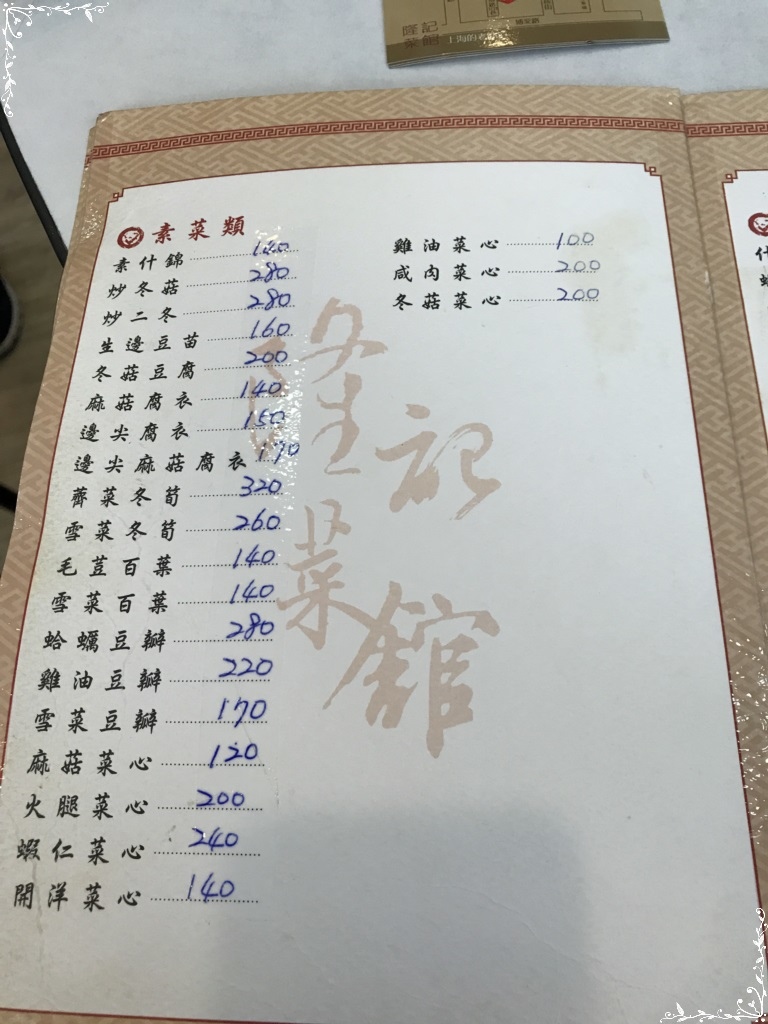 隆記
菜館
素菜類
素什錦 140
炒冬菇 280
炒二冬 280
生邊豆苗 160
冬菇豆腐 200
麻菇腐衣 140
邊尖腐衣 150
邊尖麻菇腐衣 170
薺菜冬筍 320
雪菜冬筍 260
毛荳百葉 140
雪菜百葉 140
蛤蠣豆瓣 280
雞油豆瓣 220
雪菜豆瓣 170
麻菇菜心 120
火腿菜心 200
蝦仁菜心 240
開洋菜心 140
雞油菜心 100
咸肉菜心 200
冬菇菜心 200
隆記
菜館